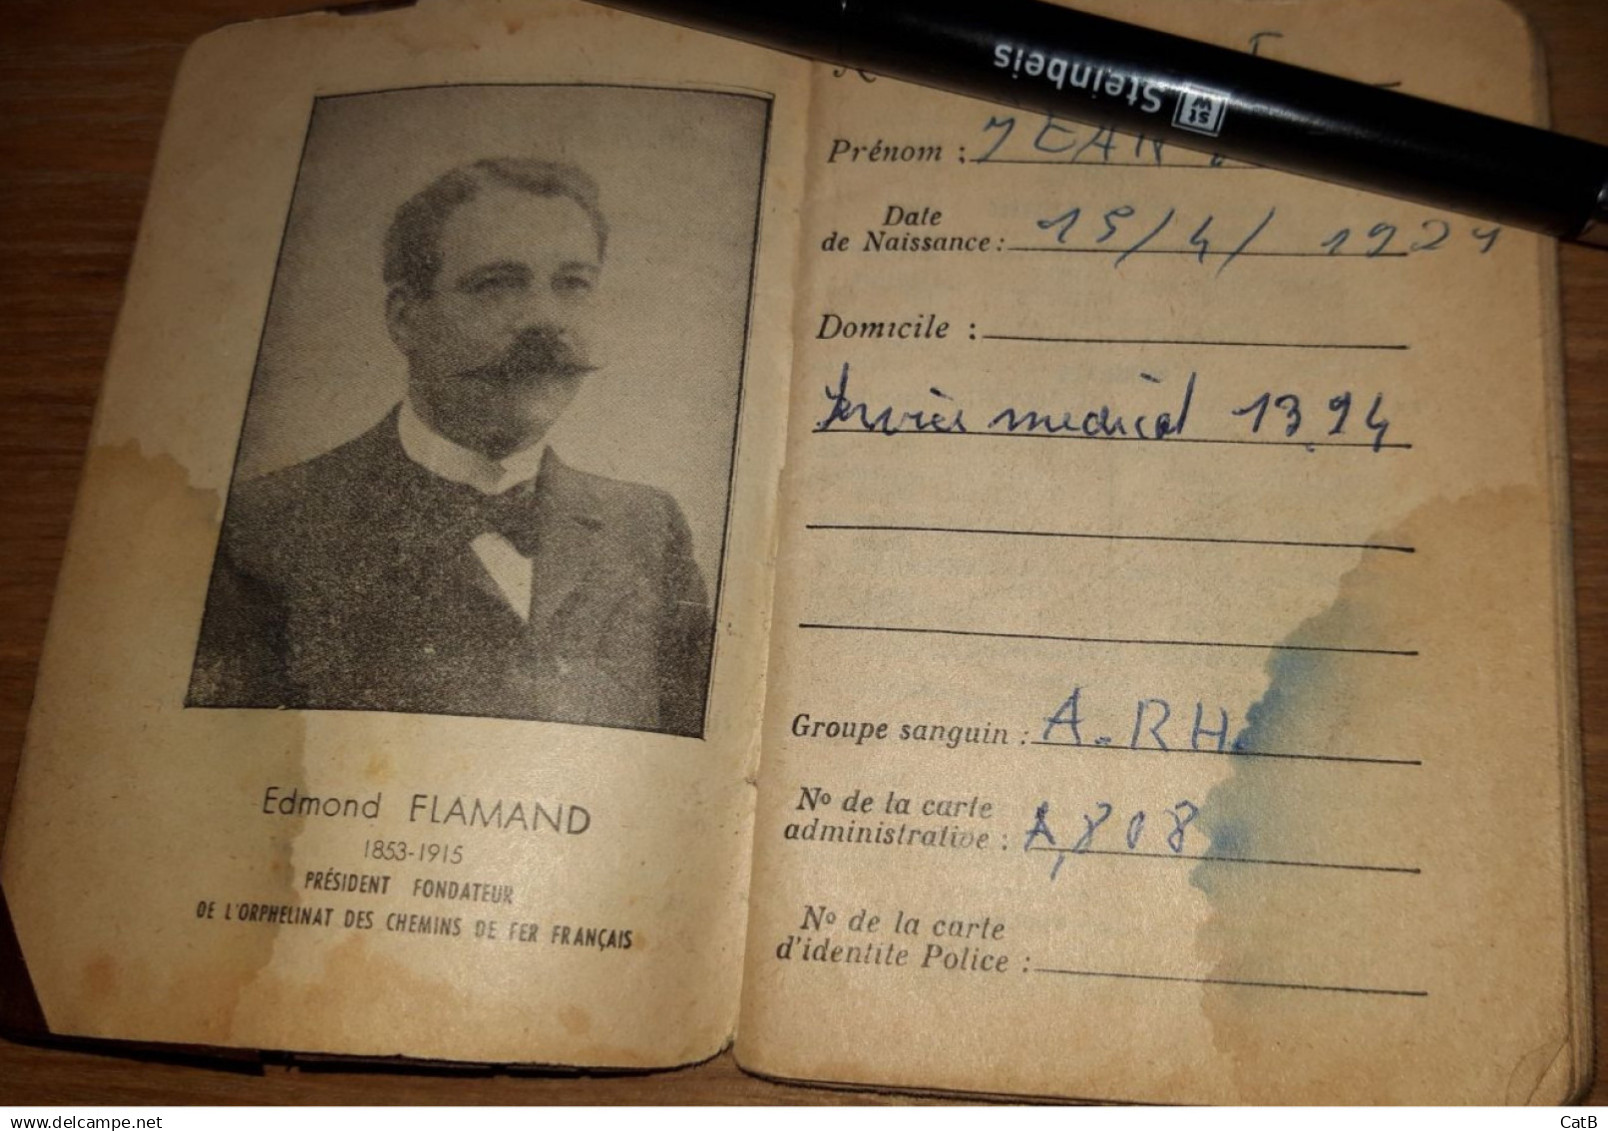 Edmond FLAMAND
1853-1915
PRÉSIDENT FONDATEUR
DE L'ORPHELINAT DES CHEMINS DE FER FRANÇAIS
Steinbeis
st
w
Prénom : JEAN
Date
de Naissance : 15/4/1924
Domicile :
Service medical 1394
Groupe sanguin : A.RH.
Nº de la carte
administrative : A,808
Nº de la carte
d'identite Police :
www.delcampe.net
CatB